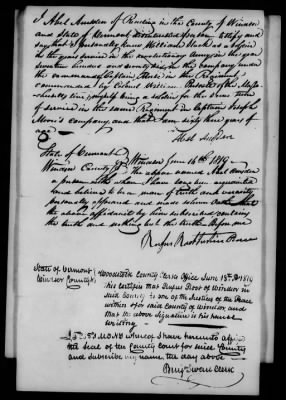 I Abel Amsden of Reading in the County of Windsor
and State of Vermont, do on oath depose testify and
say that I personally knew William Clark as a soldier
in the years served in the revolutionary Army in the year
seventeen hundred and seventy six, in the company under
the command of Captain in the Regiment
commanded by Colonel William of the Massa-
chusetts line, myself being a soldier for the same term
of service in the same Regiment in Captain Joseph
company, and that I am sixty three years of
age
Abel Amsden
State of Vermont
Windsor County Ss Windsor June 14th 1819
the above named Abel Amsden
a person with whom I have long been acquainted
and believe to be a man of truth and veracity
personally appeared and made solemn oath that
the above affidavit by him subscribed contains
the truth and nothing but the truth - Before me
Rufus Root Justice Peace
State of Vermont
Windsor County Ss Woodstock County Clerks Office June 15th 1819
this certifies that Rufus Root of Windsor in
said County is one of the Justices of the Peace
within & for said County of Windsor, and
that the above signature is his hand
writing -
In Testimony whereof I have hereunto affixed
the seal of the County Court for said County
and subscribe my name the day above
Benj Swan Clerk